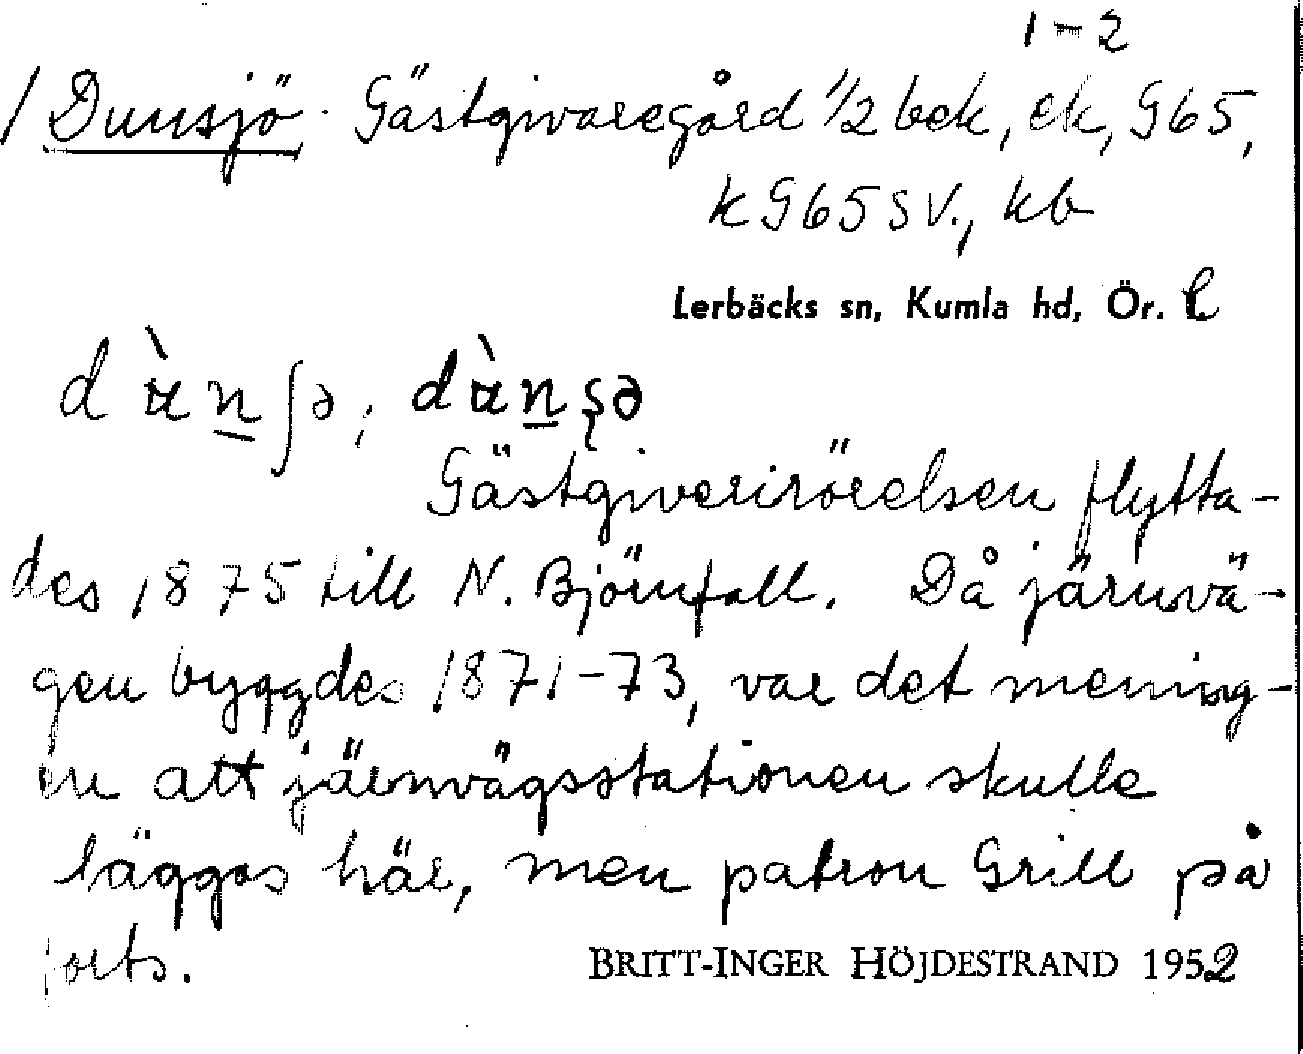 1-2
/ Dunsjö. Gästgivaregård 1/2 bek, ek, G65,
k G65 SV., kb
Lerbäcks sn, Kumla hd, Ör. l
Gästgiverirörelsen flytta-
des 1875 till N. Björnfall. Då järnvä-
gen byggdes 1871-73, var det mening-
en att järnvägsstationen skulle
läggas här, men patron Grill på
forts. BRITT-INGER HÖJDESTRAND 1952